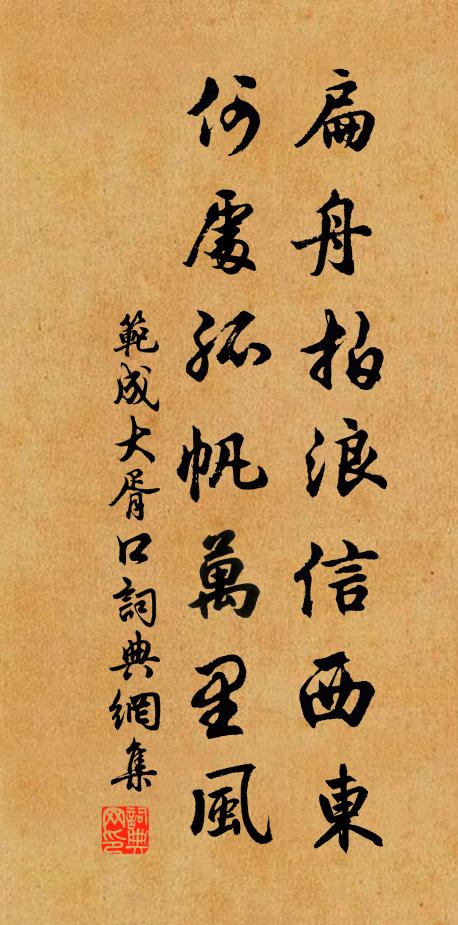 扁舟拍浪信西東
何處孤帆萬里風
範成大胥口詞典網集
詞典网印